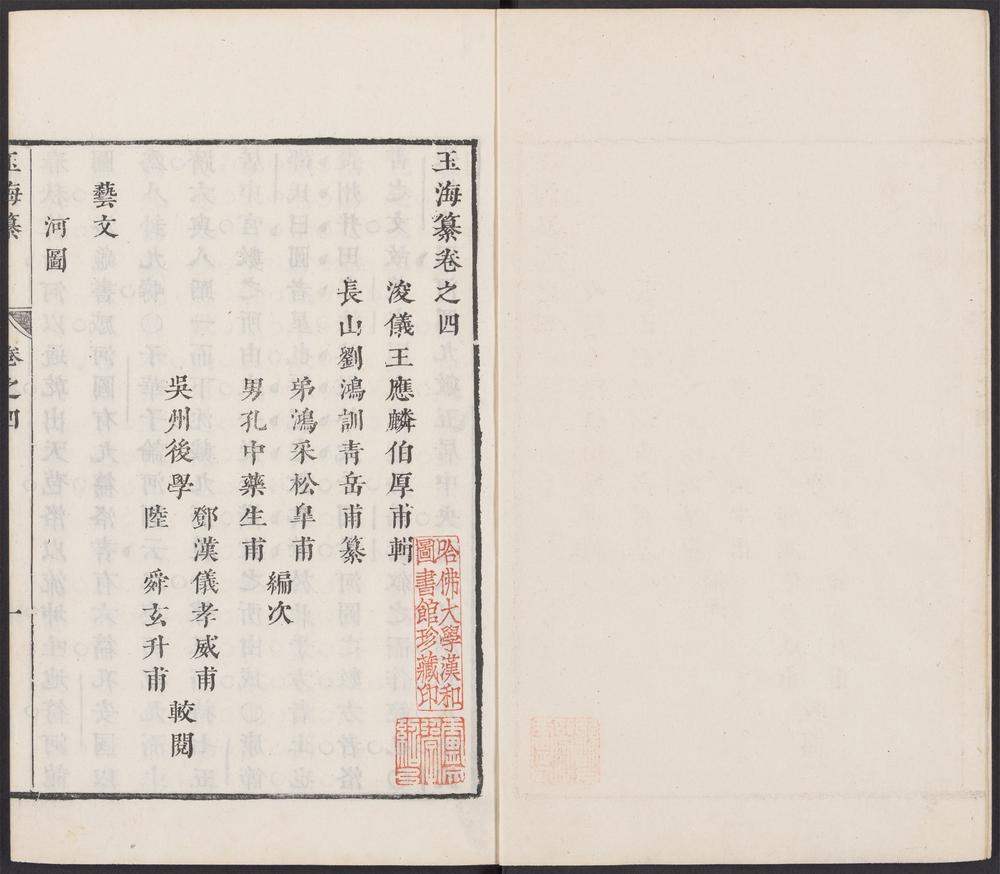 玉海纂卷之四
浚儀王應麟伯厚甫輯
長山劉鴻訓青岳甫纂
弟鴻采松阜甫
男孔中藥生甫
編次
吳州後學
鄧漢儀孝威甫
陸舜玄升甫
較閱
藝文
河圖
玉海纂
卷之四
一
哈佛大學漢和
圖書館珍藏印